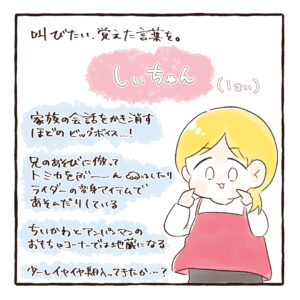 叫びたい、覚えた言葉を。
しぃちゃん
(1さい)
家族の会話をかき消す
ほどのビッグボイス…!
兄のあそびに倣って
トミカをブーーンしたり
ライダーの変身アイテムで
あそんだりしている
ちいかわとアンパンマンの
おもちゃコーナーでは地蔵になる
少ーしイヤイヤ期入ってきたか…?